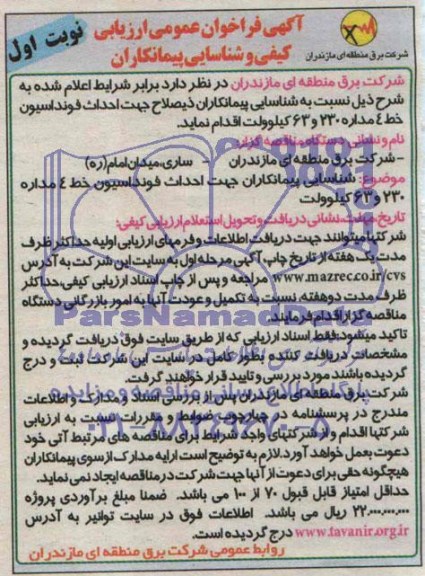 نوبت اول
آگهی فراخوان عمومی ارزیابی
کیفی و شناسایی پیمانکاران
شرکت برق منطقه ای مازندران
شرکت برق منطقه ای مازندران در نظر دارد برابر شرایط اعلام شده به
شرح ذیل نسبت به شناسایی پیمانکاران ذیصلاح جهت احداث فونداسیون
خط ٤ مداره ۲۳۰ و ۶۳ کیلوولت اقدام نماید.
نام و نشانی دستگاه مناقصه گزار:
-شرکت برق منطقه ای مازندران - ساری،میدان امام(ره)
موضوع: شناسایی پیمانکاران جهت احداث فونداسیون خط ٤ مداره
۲۳۰ و ۶۳ کیلوولت
تاریخ،مهلت،نشانی دریافت و تحویل استعلام ارزیابی کیفی:
شرکتها میتوانند جهت دریافت اطلاعات و فرمهای ارزیابی اولیه حداکثر ظرف
مدت یک هفته از تاریخ چاپ آگهی مرحله اول به سایت این شرکت به آدرس
www.mazrec.co.ir/cvs مراجعه و پس از چاپ اسناد ارزیابی کیفی،حداکثر
ظرف مدت دو هفته، نسبت به تکمیل و عودت آنها به امور بازرگانی دستگاه
مناقصه گزار اقدام فرمایند.
تاکید میشود:فقط اسناد ارزیابی که از طریق سایت فوق دریافت گردیده و
مشخصات دریافت کننده بطور کامل در سایت این شرکت ثبت و درج
گردیده باشند مورد بررسی و تایید قرار خواهند گرفت.
شرکت برق منطقه ای مازندران پس از بررسی اسناد و مدارک و اطلاعات
مندرج در پرسشنامه در چهارچوب ضوابط و مقررات نسبت به ارزیابی
شرکتها اقدام و از شرکتهای واجد شرایط برای مناقصه های مرتبط آتی خود
دعوت بعمل خواهد آورد.لازم به توضیح است ارایه مدارک از سوی پیمانکاران
هیچگونه حقی برای دعوت از آنها جهت شرکت در مناقصه ایجاد نمی نماید.
حداقل امتیاز قابل قبول ۷۰ از ۱۰۰ می باشد. ضمنا مبلغ برآوردی پروژه
۲۲.۰۰۰.۰۰۰.۰۰۰ ریال می باشد. اطلاعات فوق در سایت توانیر به آدرس
www.tavanir.org.ir درج گردیده است.
روابط عمومی شرکت برق منطقه ای مازندران
ParsNamadData
۰۲۱-۸۸۳۴۹۶۷۰-۵